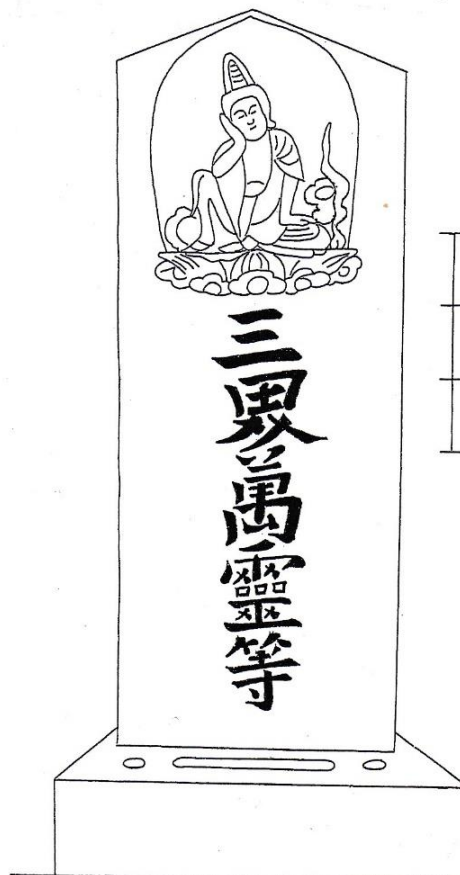 三界萬靈等